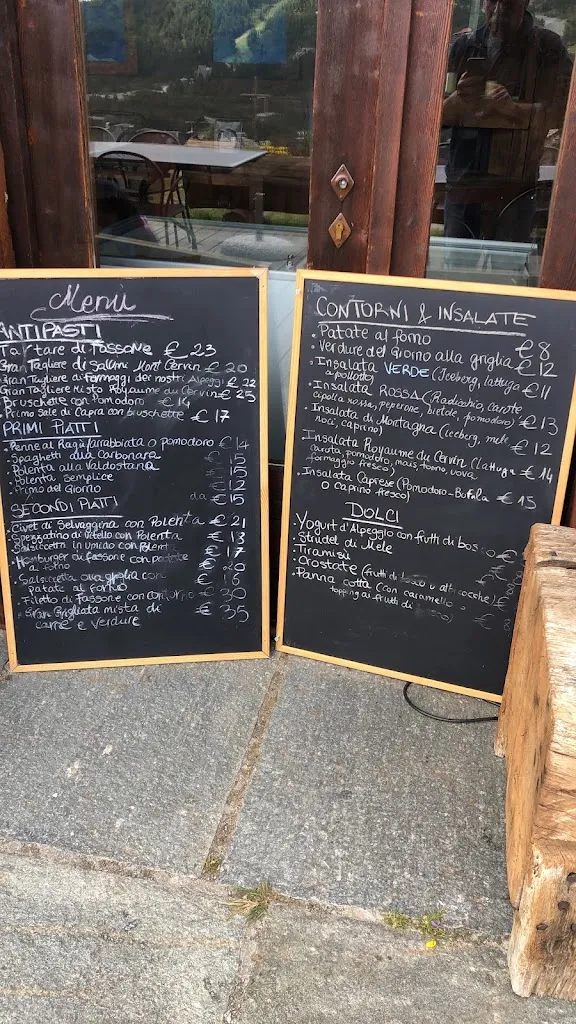 Menù
ANTIPASTI
Tartare di Fassone € 23
Gran Tagliere di Salumi Mont Cervin € 20
Gran Tagliere di Formaggi dei nostri Alpeggi € 22
Gran Tagliere Misto Royaume du Cervin € 25
Bruschette con Pomodoro € 14
Primo Sale di Capra con bruschette € 17
PRIMI PIATTI
• Penne al Ragù/arrabbiata o pomodoro € 14
• Spaghetti alla Carbonara € 15
• Polenta alla Valdostana € 15
• Polenta semplice € 12
• Primo del Giorno da € 15
SECONDI PIATTI
• Civet di Selvaggina con Polenta € 21
• Spezzatino di Vitello con Polenta € 13
• Salsiccetta in umido con Polent € 17
• Hamburger di fassone con patate
al forno € 20
Salsiccetta alla griglia con € 16
patate al forno
• Filetto di Fassone con contorno € 30
• Gran Grigliata mista di € 35
carne e verdure
CONTORNI & INSALATE
Patate al forno € 8
• Verdure del Giorno alla griglia € 12
• Insalata VERDE (Iceberg, lattuga € 11
e pollotto)
• Insalata ROSSA (Radicchio, carote
cipolla rossa, peperone, bietole, pomodoro) € 13
• Insalata di Montagna (iceberg, mele
noci, caprino) € 12
Insalata Royaume du Cervin (lattuga
carota, pomodoro, mais, tonno, uova € 14
formaggio fresco)
• Insalata Caprese (Pomodoro-Bufala € 15
o Caprino fresco)
DOLCI
• Yogurt d'Alpeggio con frutti di bosco €
• Strudel di Mele €
• Tiramisù €
• Crostate (frutti di bosco o albicocche) €
• Panna cotta (con caramello o €
topping ai frutti di bosco)